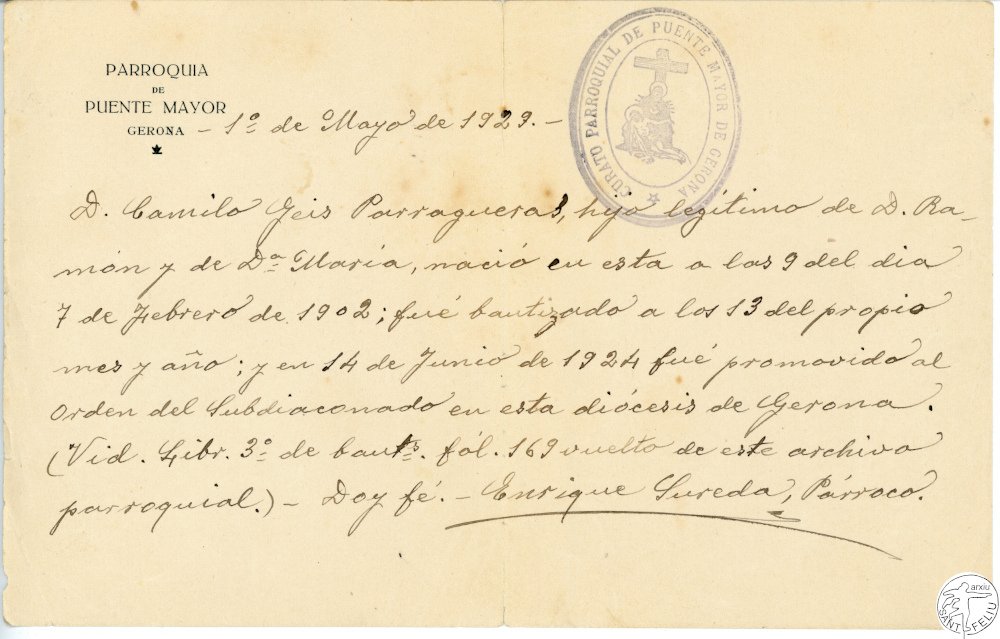 PARROQUIA
DE
PUENTE MAYOR
GERONA
CURATO PARROQUIAL DE PUENTE MAYOR DE GERONA
- 1º de Mayo de 1929. -
D. Camilo Geis Parragueras, hijo legítimo de D. Ra-
món y de Dª María, nació en esta a las 9 del dia
7 de Febrero de 1902; fué bautizado a los 13 del propio
mes y año; y en 14 de Junio de 1924 fué promovido al
Orden del Subdiaconado en esta diócesis de Gerona.
(Vid. Libr. 3º de bauts. fól. 169 vuelto de este archivo
parroquial.) - Doy fé. - Enrique Sureda, Párroco.
arxiu
SANT FELIU